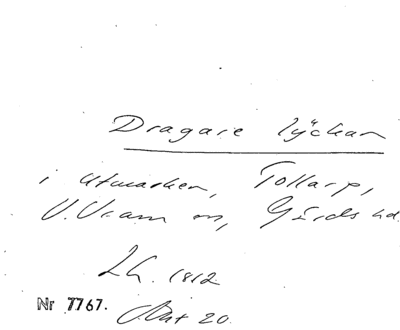 Dragare lyckan
i utmarken, Tollarp,
V. Vram sn, Gärds hd.
LG. 1812
Akt 20.
Nr 7767.